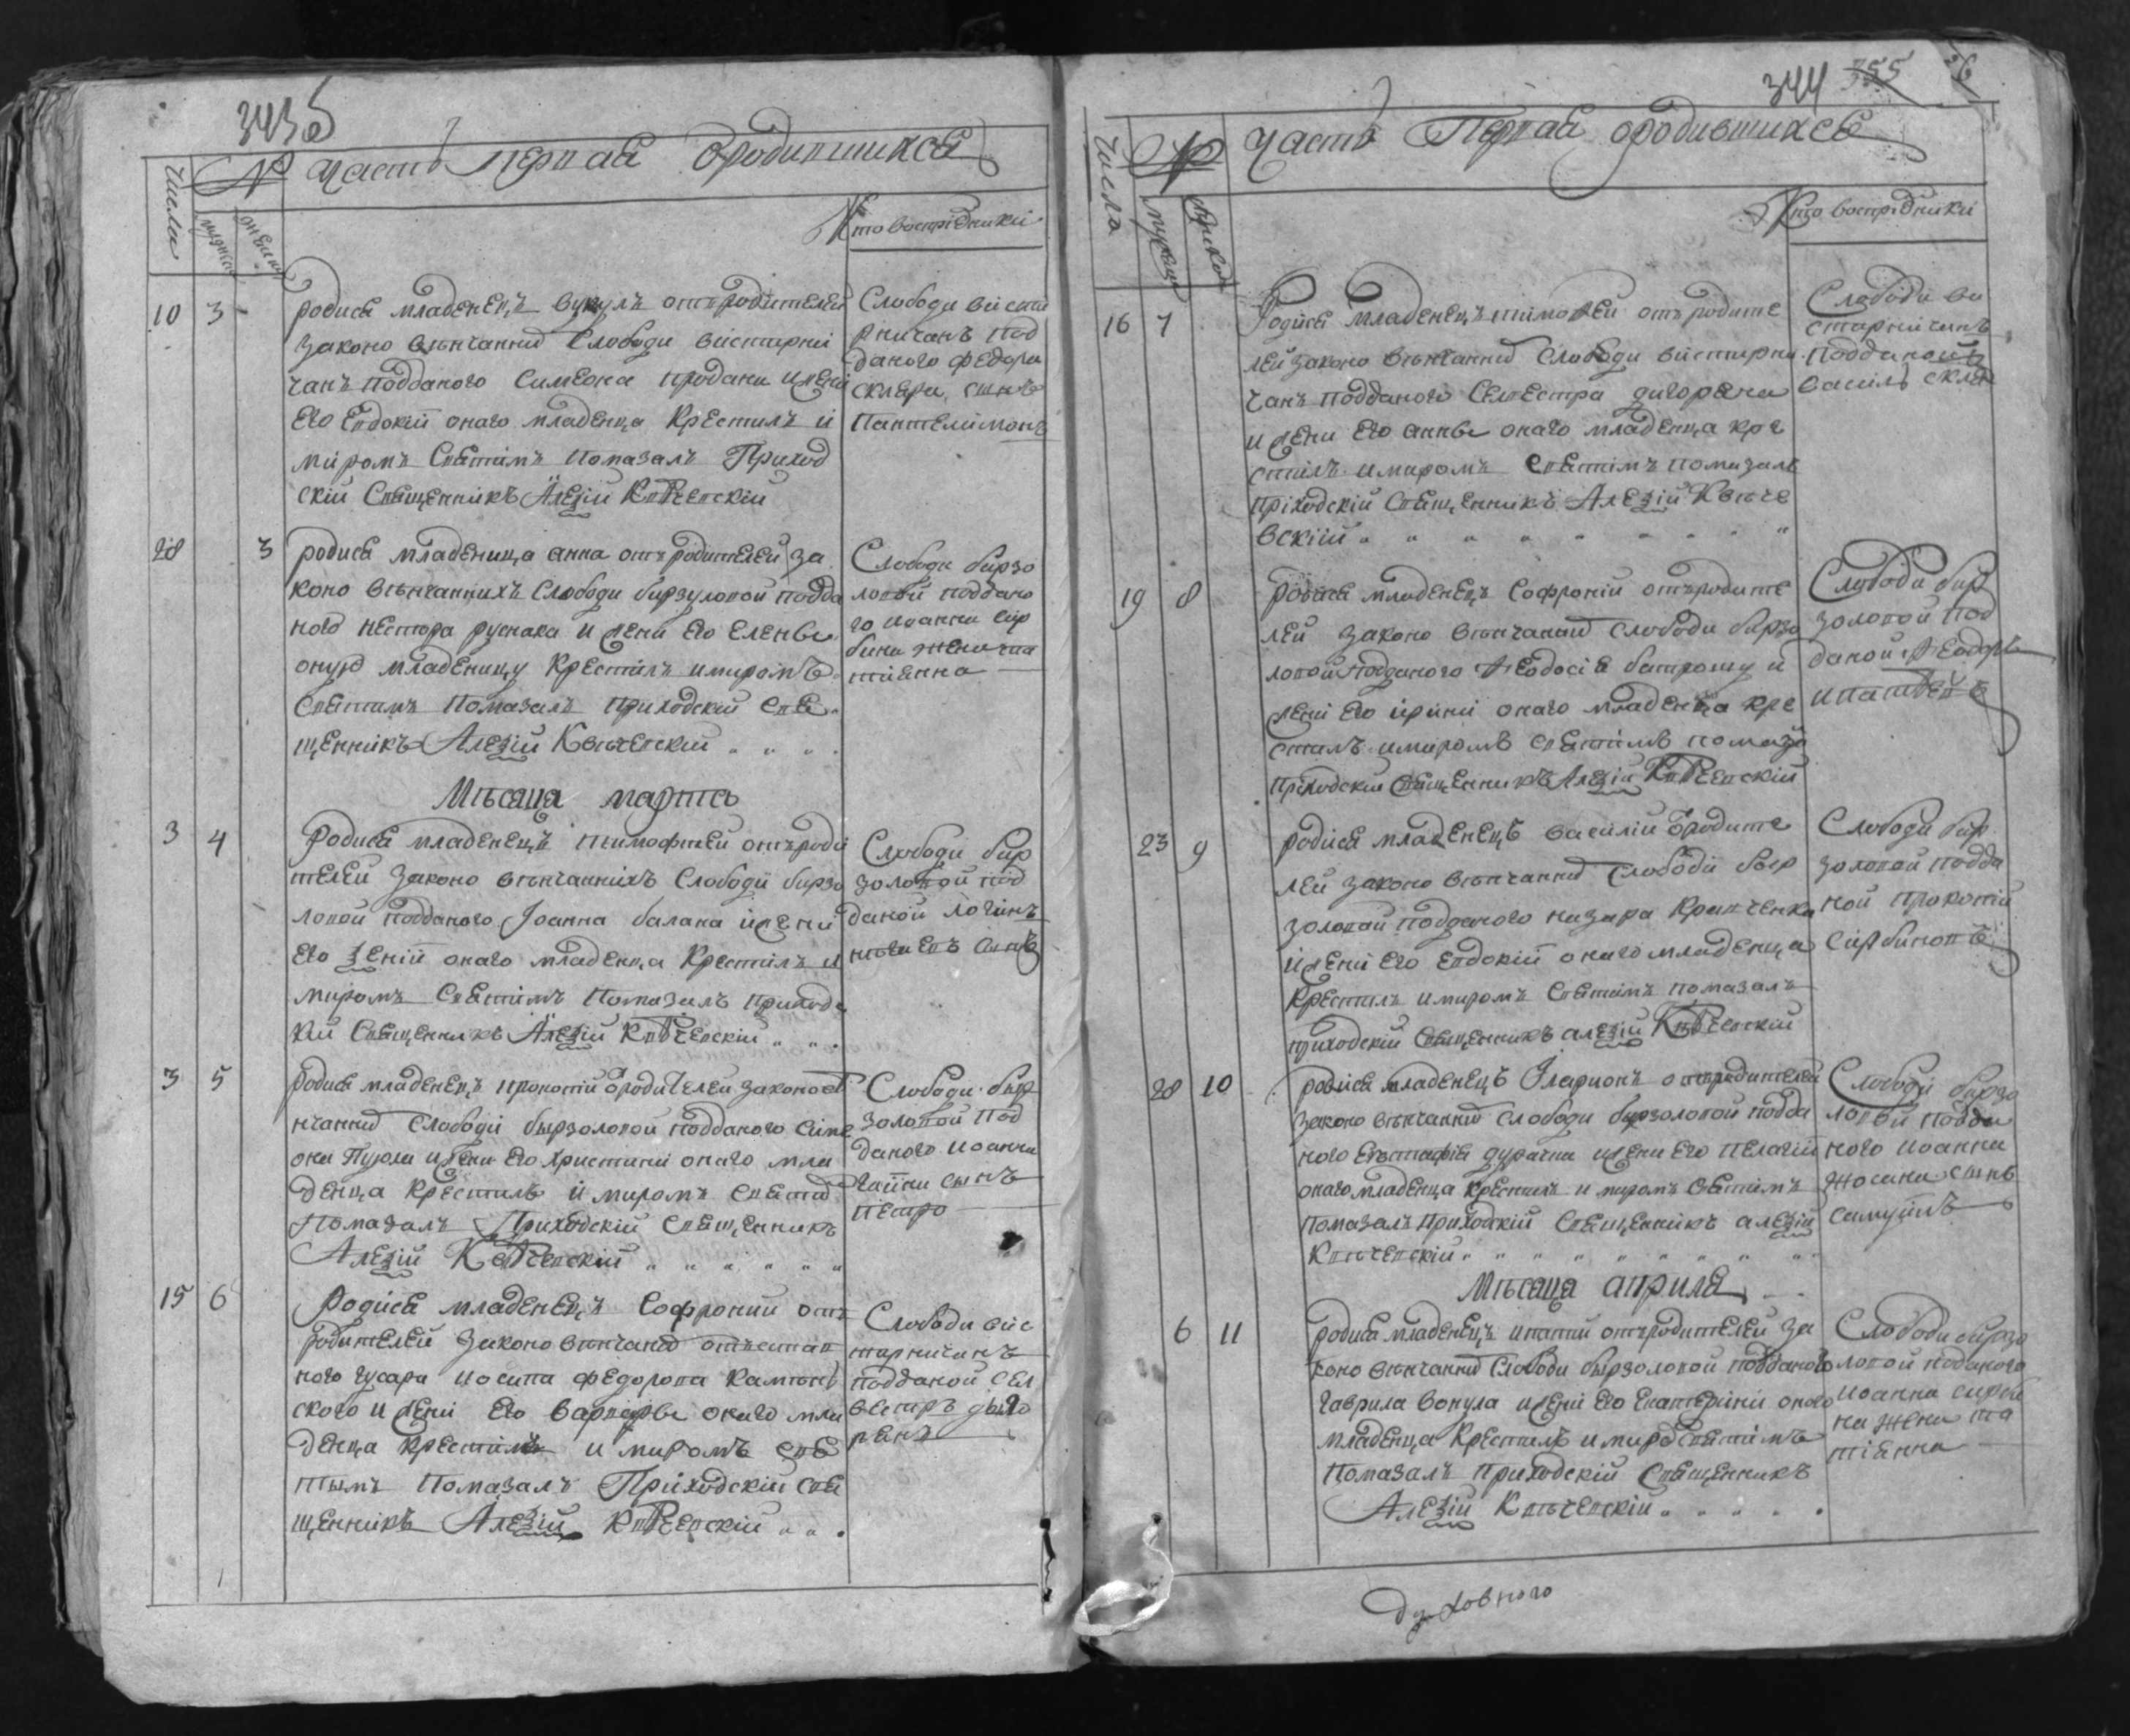 343б
Часть первая о родившихся
Числа
№
мужеска
женска
Кто восприемники
10 3
родися младенецъ вукулъ отъ родителей
законо венчанних Слободи висшприй
чанъ подданого Симеона продани и жени
Его Евдокии онаго младенца Крестилъ и
миромъ Святимъ Помазалъ Приход
ский Священникъ Алезий Кветчевский
Слободи
рничанъ под
даного Федора
скляра, сынъ
Пантелимонъ
28 3
родися младеница анна отъ родителей за
коно венчаннихъ Слободи бирзуловой подда
ного нестора руснака и жени Его Елены
оную младеницу Крестилъ и миромъ
Святимъ Помазалъ приходский Свя
щенникъ Алезий Кветчевский
Слободи бирзо
ловой поддано
го иоанна сир
бина жена та
тиянна
Месяца марта
3 4
Родися младенецъ тимофтей отъ роди
телей законо венчаннихъ Слободи бирзо
ловой подданого Иоанна балана и жени
Его Зений онаго младенца Крестилъ и
миромъ Святимъ Помазалъ приходс
кий Священникъ Алезий Кветчевский
Слободи бир
золовой под
даной логинъ
сынъ
3 5
Родися младенецъ прокопий о родителей законо ве
нчанних Слободи бырзоловой подданого Симе
она и жени Его Христини онаго мла
денца Крестилъ и миромъ Святим
Помазалъ Приходский Священникъ
Алезий Кветчевский
Слободи быр
золовой под
даного иоанна
сынъ
петро
15 6
Родися младенецъ Софроний отъ
родителей законо венчаних отъстав
ного гусара иосипа федорова
ского и жени Его Варвары онаго мла
денца Крестилъ и миромъ Свя
тымъ Помазалъ Приходский Свя
щенникъ Алезий Кветчевский
Слободи вис
тирничанъ
подданой сел
вестръ дыго
ранъ
344 355 26
Часть Первая о родившихся
Числа
№
мужеска
женска
Кто восприемники
16 7
Родися младенецъ тимофей отъ родите
лей законо венчанних Слободи вистирни
чанъ подданого Селвестра дигорана
и жени Его анны онаго младенца кре
стилъ и миромъ Святимъ помазалъ
приходский Священникъ Алезий Кветче
вский
Слободи ви
стирничанъ
подданой
василь скляр
19 8
Родися младенецъ Софроний отъ родите
лей законо венчаних Слободи бирзо
ловой поданого Феодосия батрошу и
жени Его ирини онаго младенца кре
стилъ и миромъ святимъ помаза
приходский священникъ Алезий Кветчевский
Слободи бир
золовой под
даной Феодоръ
ипатовъ
23 9
родися младенецъ василий о родите
лей законо венчанних Слободи быр
золовой подданого назара Кравченка
и жени Его Евдокии онаго младенца
Крестилъ и миромъ Святимъ помазалъ
приходский священникъ алезий Кветчевский
Слободи бир
золовой подда
ной прокопий
сирбиновъ
28 10
родися младенецъ Иларионъ отъ родителей
законо венчанних Слободи бирзоловой подда
ного Евстафия дурачна и жени Его Пелагии
онаго младенца крестилъ и миромъ Святимъ
помазалъ приходский Священникъ алезий
Кветчевский
Слободи бирзо
ловой подда
ного иоанна
жосана сынъ
самуилъ
Месяца априля
6 11
родися младенецъ ипатий отъ родителей за
коно венчанних Слободи бырзоловой подданого
гаврила вакула и жени Его Екатерини онаго
младенца Крестилъ и миро Святимъ
Помазалъ приходский Священникъ
Алезий Кветчевский
Слободи бирзо
ловой поданого
иоанна сирби
на жена та
тиянна
духовного